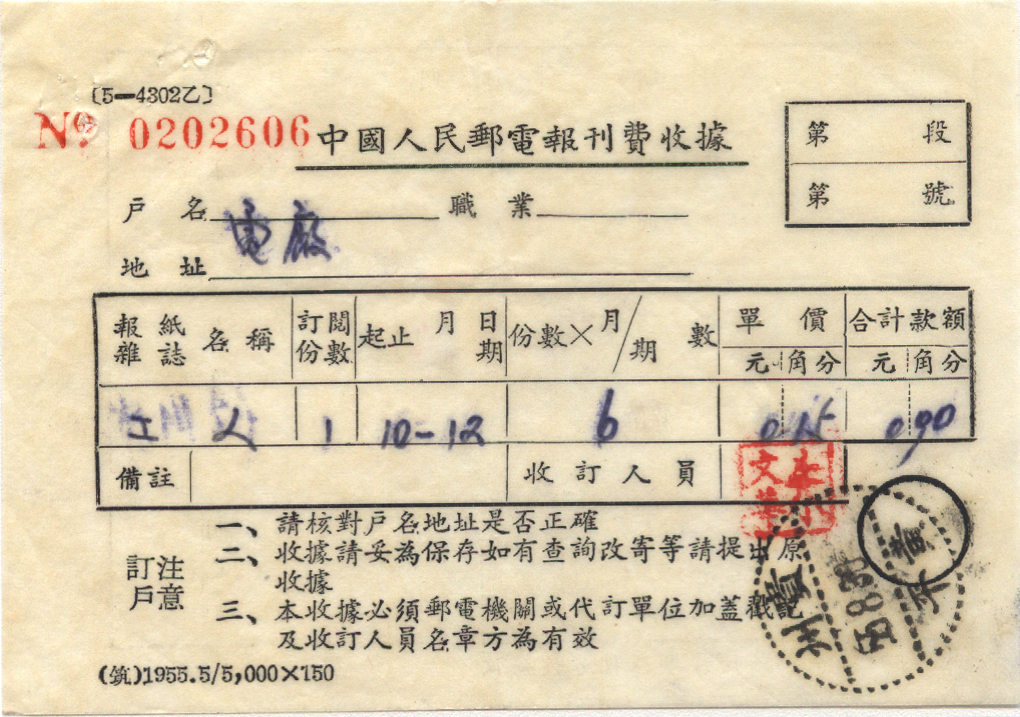 〔5—4302乙〕
№ 0202606 中國人民郵電報刊費收據
第 段
第 號
戶名 電廠 職業
地址
報紙雜誌名稱 訂閱份數 起止月日期 份數×月/期數 單價 合計款額
元角分 元角分
工人 1 10-12 6 0 15 0 90
備註 收訂人員
訂戶注意
一、請核對戶名地址是否正確
二、收據請妥為保存如有查詢改寄等請提出原
收據
三、本收據必須郵電機關或代訂單位加蓋戳記
及收訂人員名章方為有效
(筑)1955.5/5,000×150